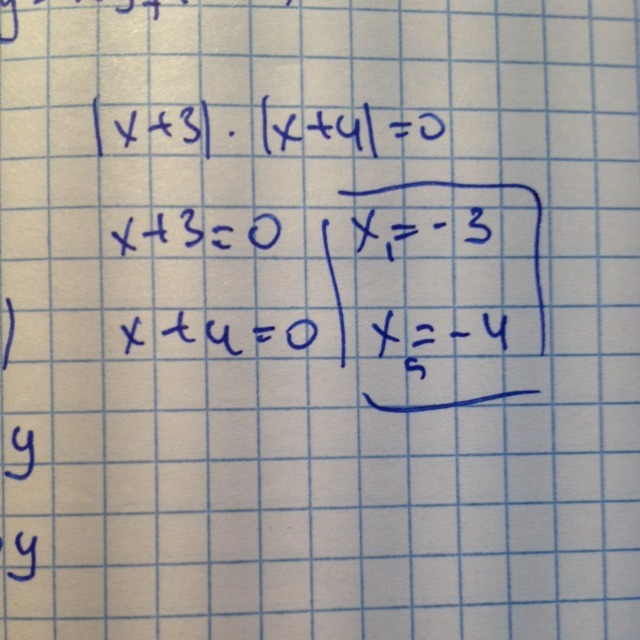 |x+3| · |x+4| = 0
x+3=0 | x₁ = -3
x+4=0 | x₂ = -4
)
y
y